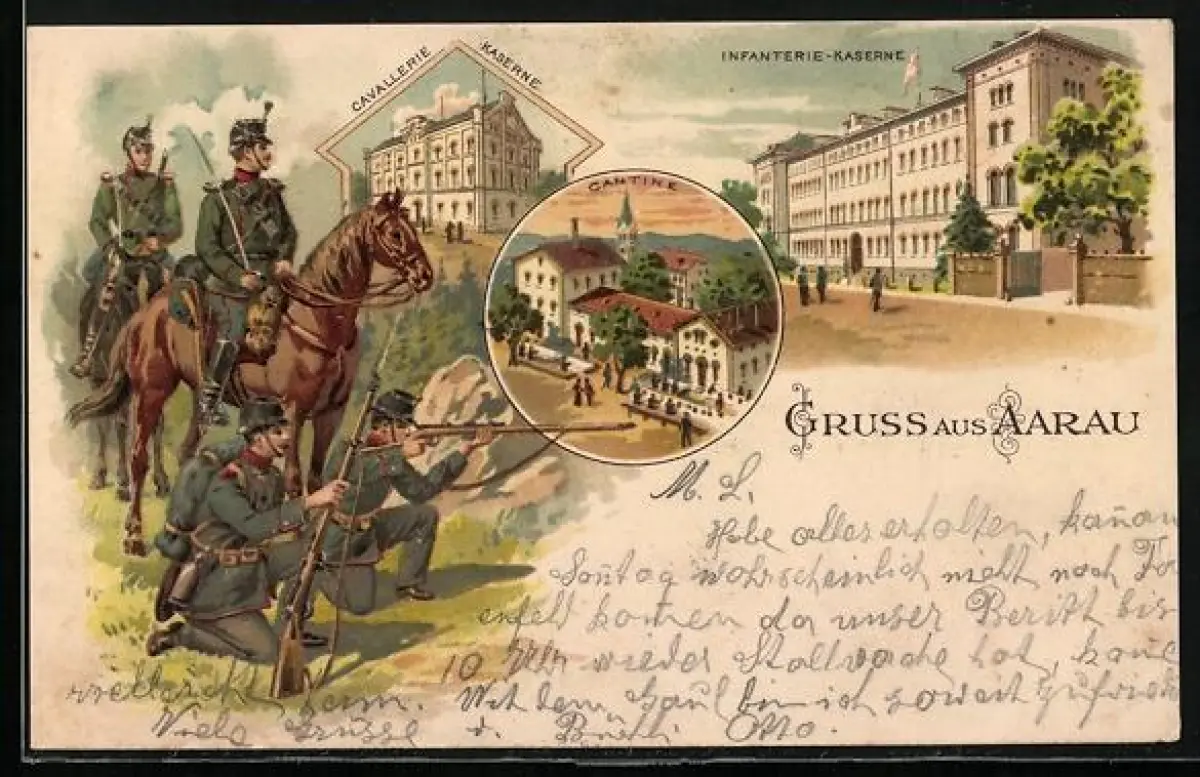 CAVALLERIE KASERNE
INFANTERIE-KASERNE
CANTINE
GRUSS AUS AARAU
M. L.
Habe alles erhalten, kan̄ an
Son̄tag wahrscheinlich nicht nach
kom̄en da unser Beritt bis
10 Uhr wieder Stallwache hat,
vielleicht heim. Mit dem Gaul bin ich soweit zufried
Viele Grüsse d. Otto.